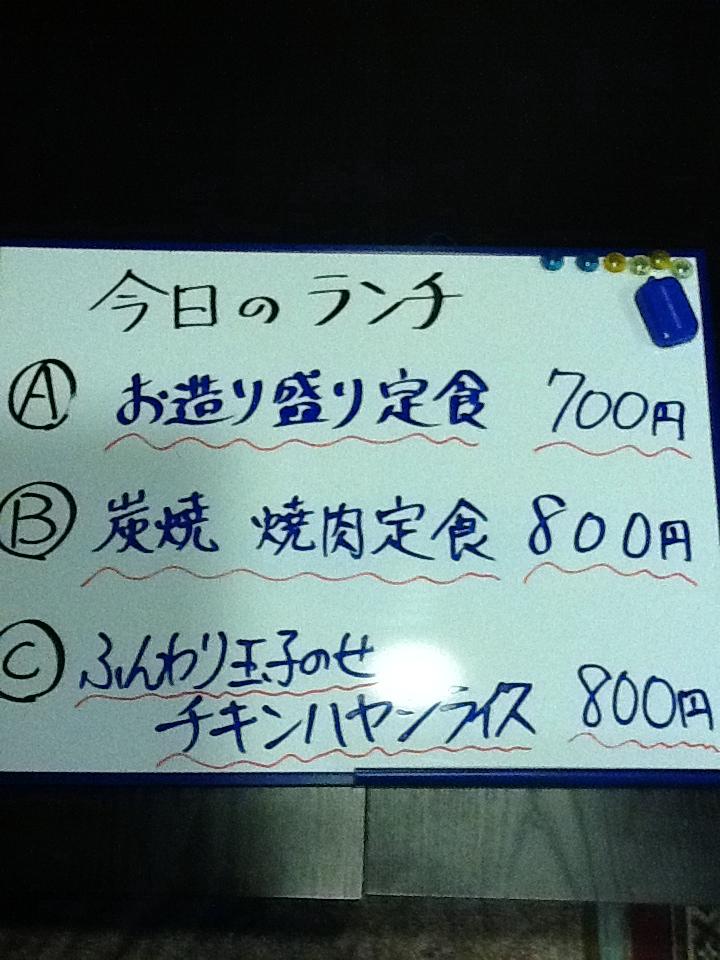 今日のランチ
Ⓐ お造り盛り定食 700円
Ⓑ 炭焼 焼肉定食 800円
Ⓒ ふんわり玉子のせ
チキンハヤシライス 800円